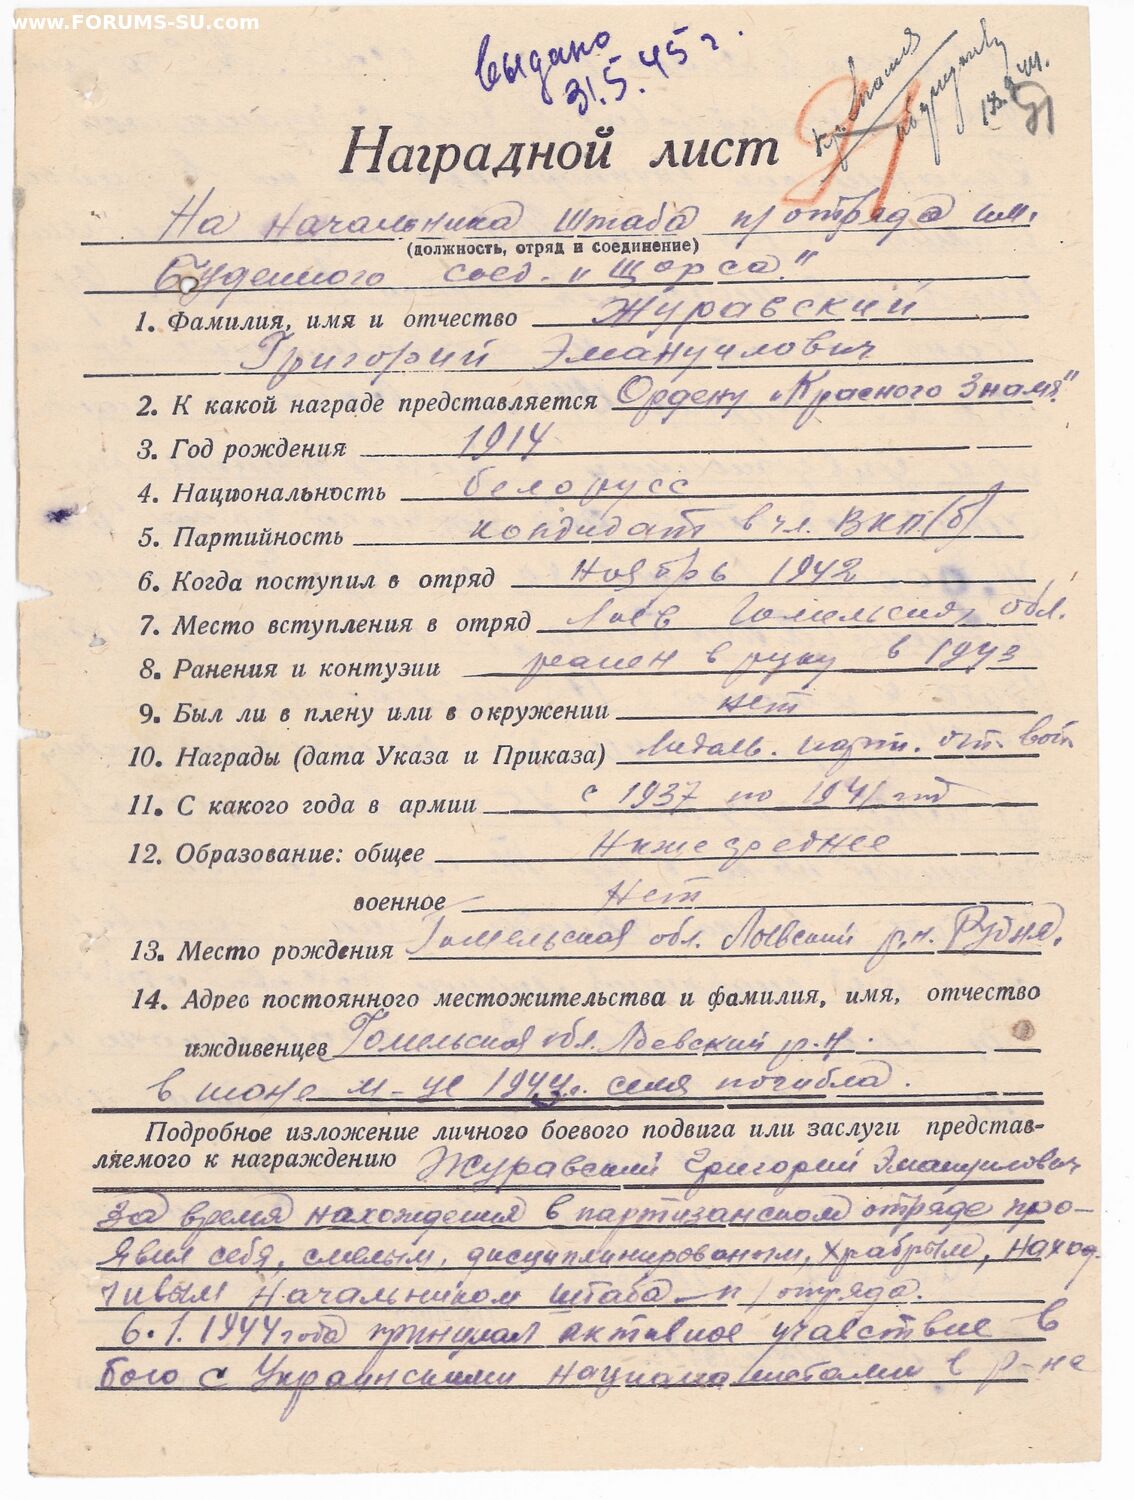 www.FORUMS-SU.com
Выдано
31.5.45 г.
Кр. Знамя
91
Наградной лист
На Начальника Штаба п/отряда им.
(должность, отряд и соединение)
Буденного соед. "Щорса."
1. Фамилия, имя и отчество Журавский
Григорий Эмануилович
2. К какой награде представляется Ордену "Красного Знамя."
3. Год рождения 1914
4. Национальность белорусс
5. Партийность кандидат в чл. ВКП(б)
6. Когда поступил в отряд Ноябрь 1942
7. Место вступления в отряд Лоев Гомельская обл.
8. Ранения и контузии ранен в руку в 1943
9. Был ли в плену или в окружении нет
10. Награды (дата Указа и Приказа) Медаль. парт. от. вой
11. С какого года в армии с 1937 по 1941 год
12. Образование: общее Ниже среднее
военное Нет
13. Место рождения Гомельская обл. Лоевский р.н. Рудня.
14. Адрес постоянного местожительства и фамилия, имя, отчество
иждивенцев Гомельская обл. Лоевский р.н.
в июне м-це 1943г. семя погибла.
Подробное изложение личного боевого подвига или заслуги представ-
ляемого к награждению Журавский Григорий Эмануилович
За время нахождения в партизанском отряде про-
явил себя, смелым, дисциплинированым, храбрым, наход-
чивым Начальником штаба п/отряда.
6.1.1944 года принимал активное участвие в
бою с Украинскими националистами в р-не